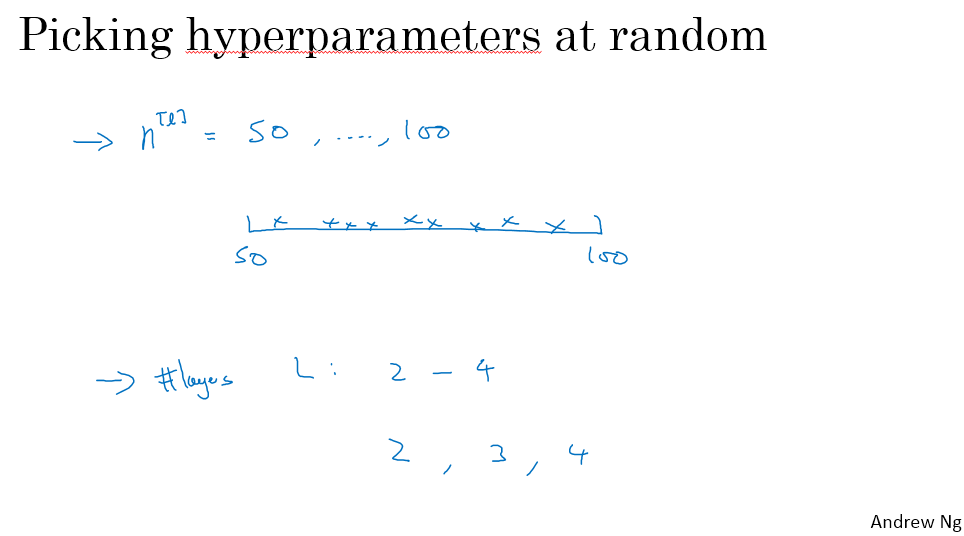 Picking hyperparameters at random
→ n^[l] = 50 , ...., 100
50 100
→ #layers L : 2 - 4
2 , 3 , 4
Andrew Ng